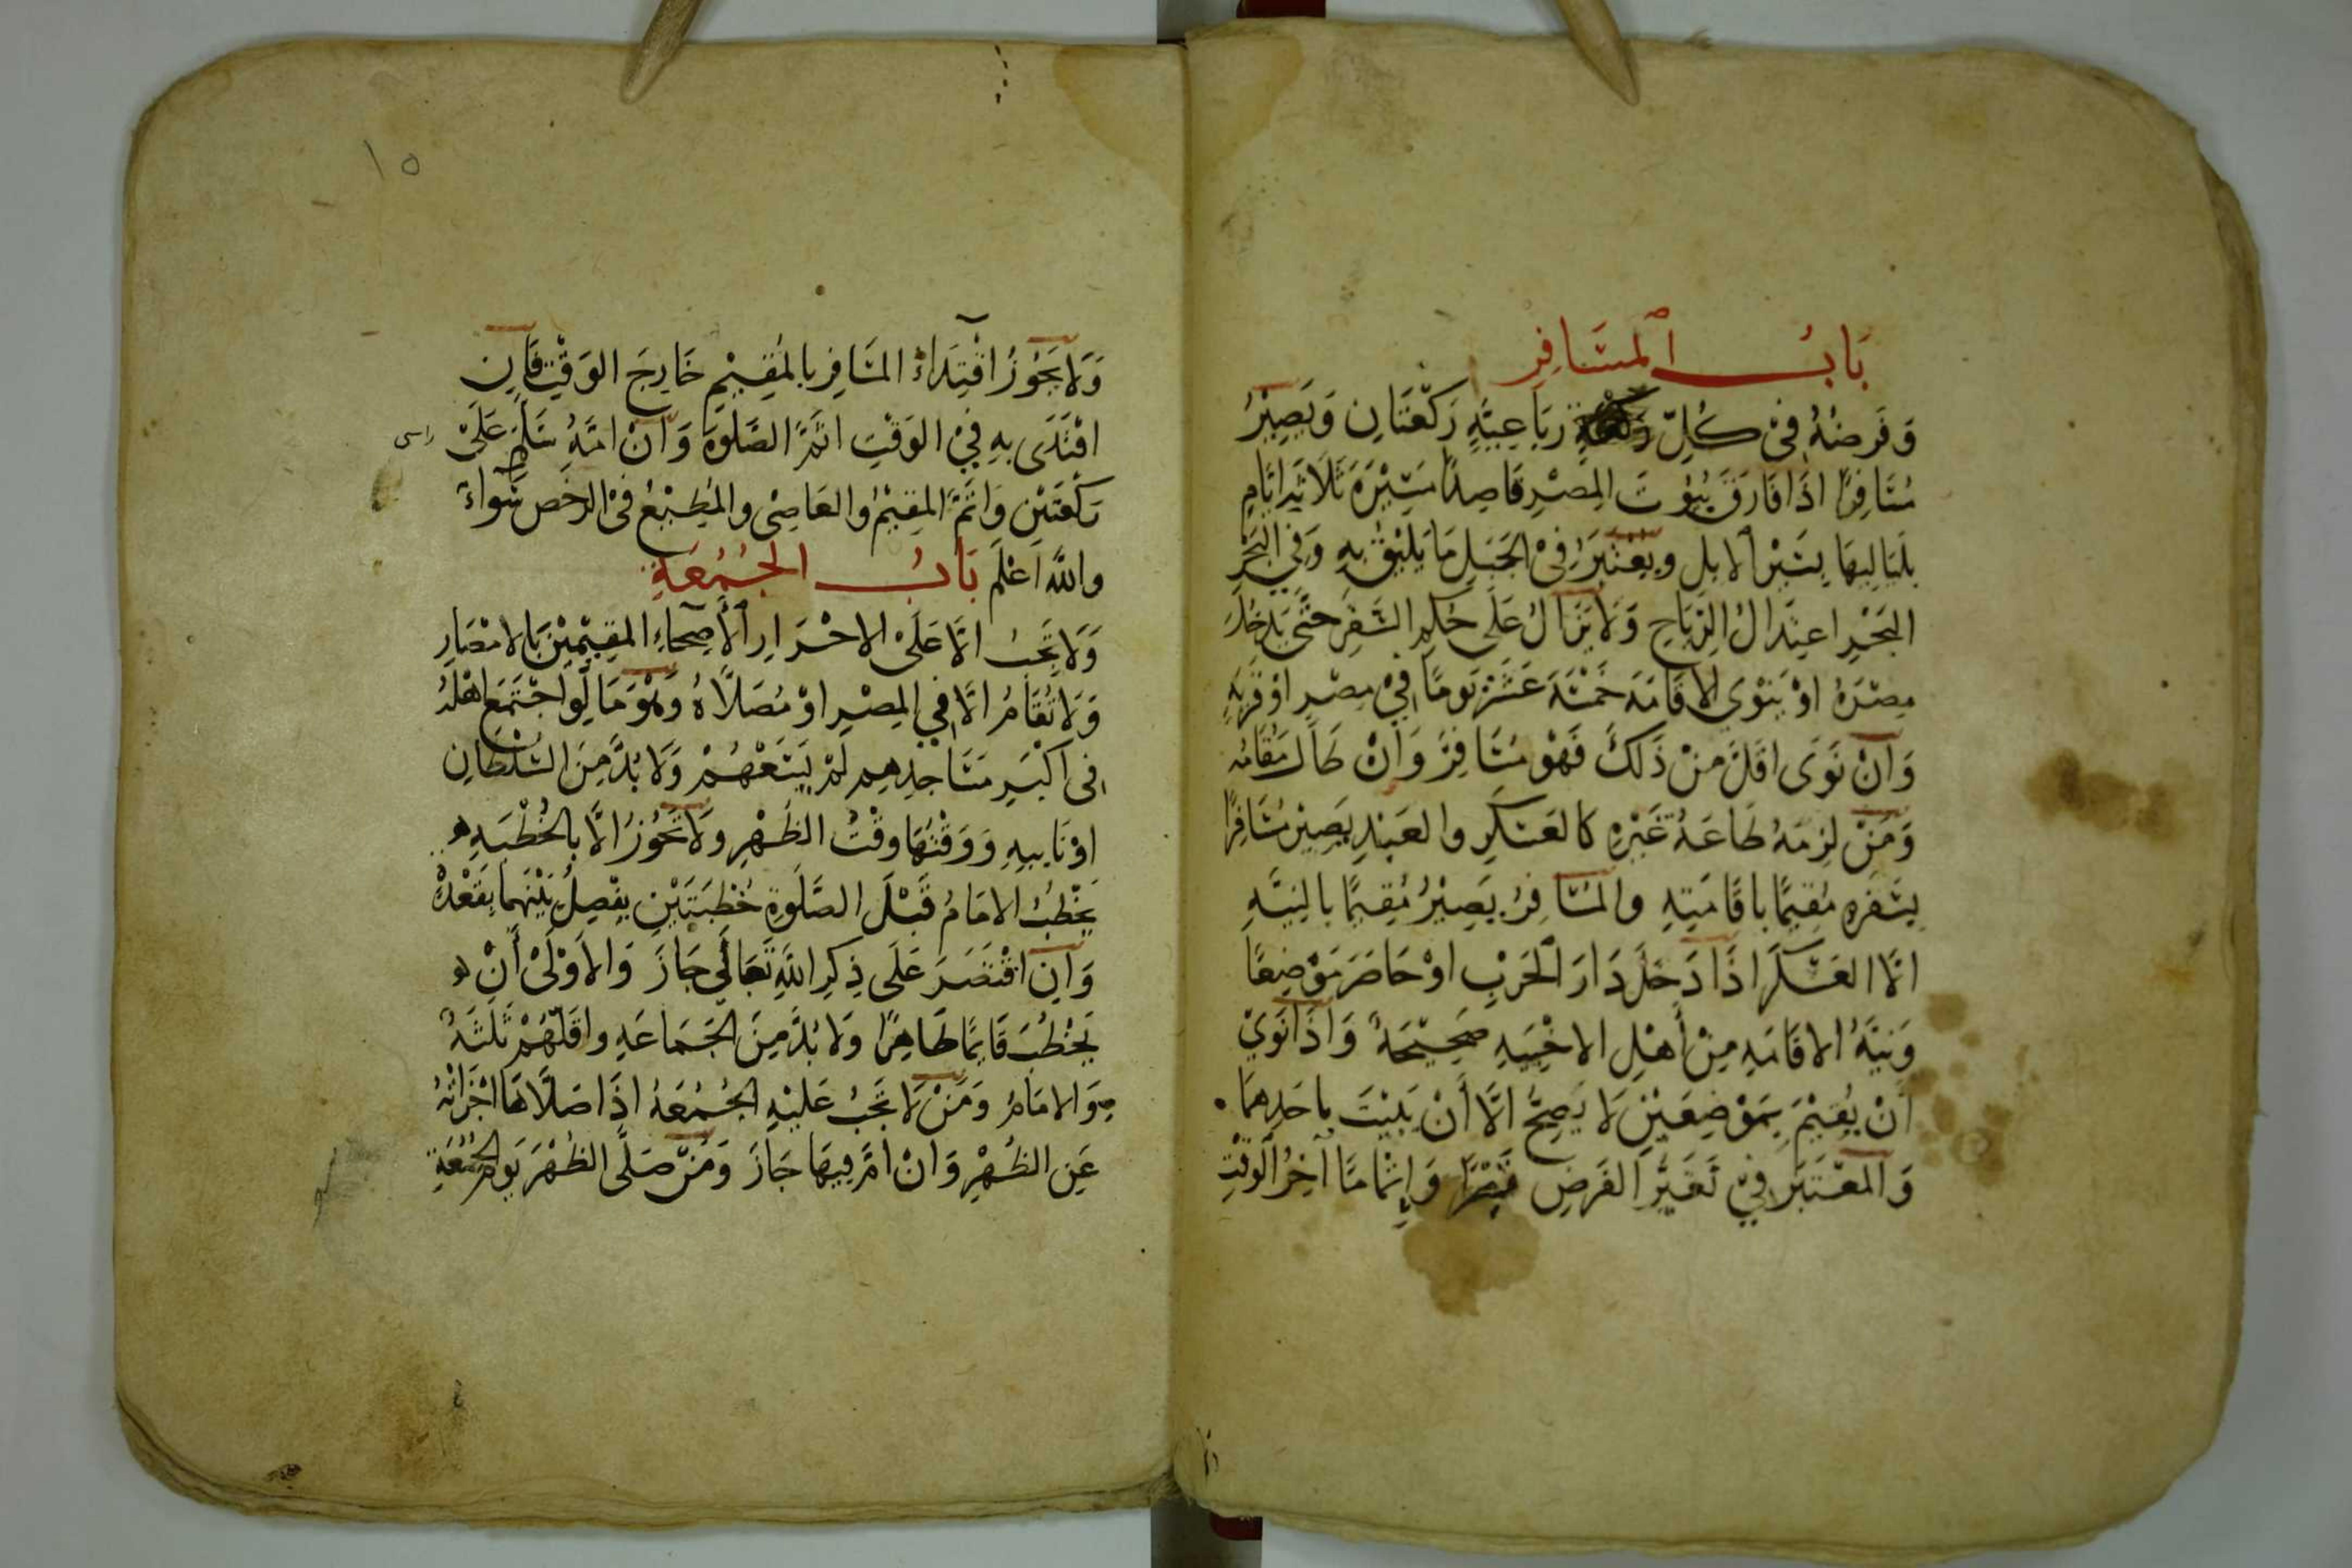 بَابُ المسَافِر
وَفَرضُهُ فِي كُلِّ رَبَاعِيَّةٍ رَكْعَتَانِ وَيَصِيْرُ
مُسَافِرًا اذَا فَارَقَ بُيُوتَ المِصْرِ قَاصِدًا مَسِيْرَةَ ثَلَاثَةِ ايَّامٍ
بلَيَالِيهَا بِسَيْرِ الابِلِ ويعْتَبَرُ فِي الجَبَلِ مَا يَلِيْقُ بِهِ وَفِي البَحْرِ
البَحْرِ اعتِدَالُ الرِّيَاحِ وَلَا يَزَالُ عَلَى حُكمِ السَّفَرِ حتَّى يَدخُلَ
مِصْرَهُ اوْ يَنْوِي الاقَامَةَ خَمْسَةَ عَشَرَ يَومًا فِي مِصْرٍ اوْ قَريَةٍ
وَانْ نَوَى اقَلَّ مِنْ ذَلكَ فَهُوَ مُسَافِرٌ وَانْ طَالَ مقَامُه
وَمَنْ لَزِمَهُ طَاعَةُ غَيْرِهِ كَالعَسْكَرِ والعَبْدِ يَصِيْر مُسَافِرًا
بِسَفَرِهِ مُقِيمًا باقَامَتِهِ والمُسَافِرُ يَصِيْرُ مُقِيمًا بالنِيَّةِ
الَّا العَسْكَرَ اذَا دَخَلَ دَارَ الحَرْبِ اوْ حَاصَرَ مَوْضِعًا
وَنيَّةُ الاقَامَةِ مِنْ أَهْلِ الاخْبِيَةِ صَحِيْحَةٌ وَاذَا نَوَيْ
أَنْ يُقِيْمَ بِمَوْضِعَيْنِ لَا يَصِحُّ الَّا أَنْ يَبِيْتَ باحَدِهمَا
وَالمعْتَبَرُ فِيْ تَغَيُّرِ الفَرضِ قَصْرًا وَإتْمامًا آخِرُ الوَقْتِ
١٥
وَلَا يَجُوْزُ اقْتِدَاءُ المسَافِرِ بالمُقِيْمِ خَارِجَ الوَقْتِ فَانِ
اقْتَدَى بِهِ فِيْ الوَقْتِ اتَمَّ الصَّلوةَ وَانْ امَّهُ سَلَّمَ عَلَى راس
رَكْعَتَيْنِ وَاتَمَّ المقِيْمُ والعَاصِى والمُطِيْعُ فى الرخَصِ سَوَاءٌ
واللهُ اعْلَم بَابُ الجُمُعَةِ
وَلَا تَجِبُ الَّا عَلَى الاحْرَارِ الأَصِحَّاءِ المقِيْمِيْنَ بالامْصَارِ
وَلَا تُقَامُ الَّا فِي المِصْرِ اوْ مُصَلَّاهُ وَهُوَ مَا لَوِ اجْتَمَعَ اهْلُهُ
فِى اكْبَرِ مَسَاجِدِهِم لَمْ يَسَعْهُمْ وَلَا بُدَّ مِنَ السُّلْطَانِ
اوْ نَايبِهِ وَوَقْتُهَا وقْتُ الظُهْرِ ولَا تَجُوْزُ الَّا بالخُطْبَةِ
يَخْطُبُ الامَامُ قَبْلَ الصَّلَوةِ خُطْبَتَيْنِ يفْصِلُ بَيْنَهُما بِقَعْدَةٍ
وَانِ اقْتَصَرَ عَلَى ذِكرِ اللهِ تَعَالَى جَازَ وَالاوْلَى أَنْ
يَخْطُبَ قَايمًا طَاهِرًا وَلَا بُدَّ مِنَ الجَمَاعَةِ واقَلّهُمْ ثَلثَةٌ
سِوَى الامَامِ وَمَنْ لَا تَجِبُ عَليْهِ الجُمُعَةُ اذَا صَلَّاهَا اجْزَاتْهُ
عَنِ الظُهْرِ وَانْ امَّ فِيهَا جَازَ وَمَنْ صَلَّى الظُهْرَ يَومَ الجُمُعَةِ